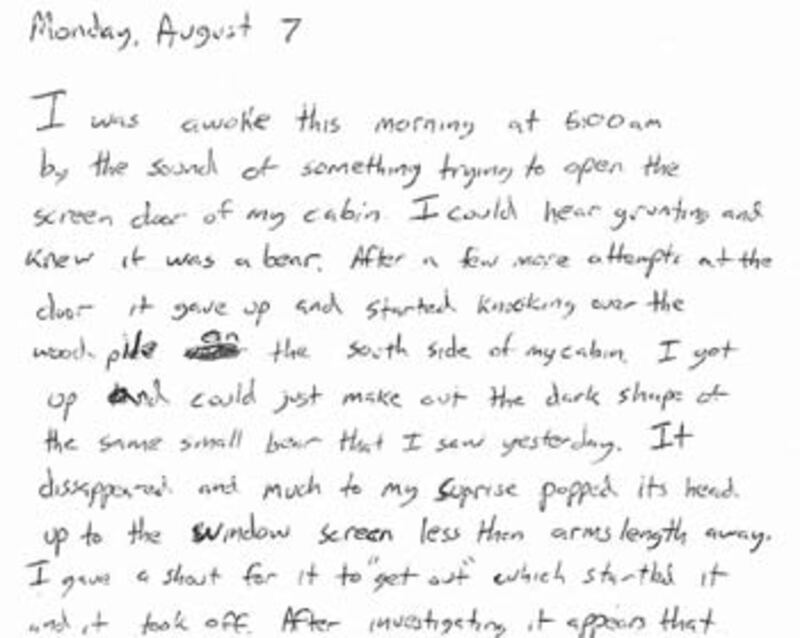 Monday, August 7
I was awoke this morning at 6:00am
by the sound of something trying to open the
screen door of my cabin. I could hear grunting and
knew it was a bear. After a few more attempts at the
door it gave up and started knocking over the
wood pile on the south side of my cabin. I got
up and could just make out the dark shape of
the same small bear that I saw yesterday. It
dissappeared and much to my suprise popped its head
up to the window screen less then arms length away.
I gave a shout for it to "get out" which startled it
and it took off. After investigating it appears that